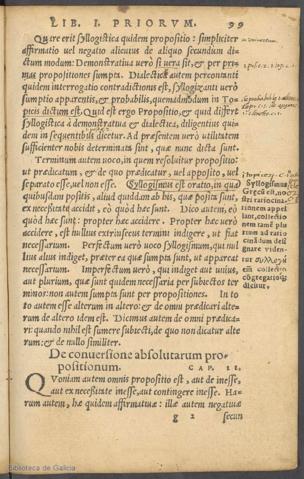 LIB. I. PRIORVM. 99
Quare erit syllogistica quidem propositio: simpliciter
affirmatio uel negatio alicuius de aliquo secundum di
ctum modum: Demonstratiua uerò si uera sit, & per pri
mas propositiones sumpta. Dialectica autem percontanti
quidem interrogatio contradictionis est, syllogizanti uerò
sumptio apparentis, & probabilis, quemadmodum in To
picis dictum est. Quid est ergo Propositio, & quid differt
syllogistica à demonstratiua & dialectica, diligentius qui-
dem in sequentibus dicetur. Ad præsentem uerò utilitatem
sufficienter nobis determinata sint, quæ nunc dicta sunt.
Terminum autem uoco, in quem resoluitur propositio:
ut prædicatum, & de quo prædicatur, uel apposito, uel
separato esse, uel non esse. Syllogismus est oratio, in qua
quibusdam positis, aliud quiddam ab his, quæ posita sunt,
ex necessitate accidit, eò quòd hæc sunt. Dico autem, eò
quòd hæc sunt: propter hæc accidere. Propter hæc uerò
accidere, est nullius extrinsecus termini indigere, ut fiat
necessarium. Perfectum uerò uoco syllogismum, qui nul
lius alius indiget, præter ea quæ sumpta sunt, ut appareat
necessarium. Imperfectum uerò, qui indiget aut unius,
aut plurium, quæ sunt quidem necessaria per subiectos ter
minos: non autem sumpta sunt per propositiones. In to
to autem esse alterum in altero: & de omni prædicari alte-
rum de altero idem est. Dicimus autem de omni prædica-
ri: quando nihil est sumere subiecti, de quo non dicatur alte
rum: & de nullo similiter.
Syllogismus
Græcis est,
De conuersione absolutarum pro-
positionum. CAP. II.
Quoniam autem omnis propositio est, aut de inesse,
aut ex necessitate inesse, aut contingere inesse. Ha-
rum autem, hæ quidem affirmatiuæ: illæ autem negatiuæ
g 2 secun
Biblioteca de Galicia